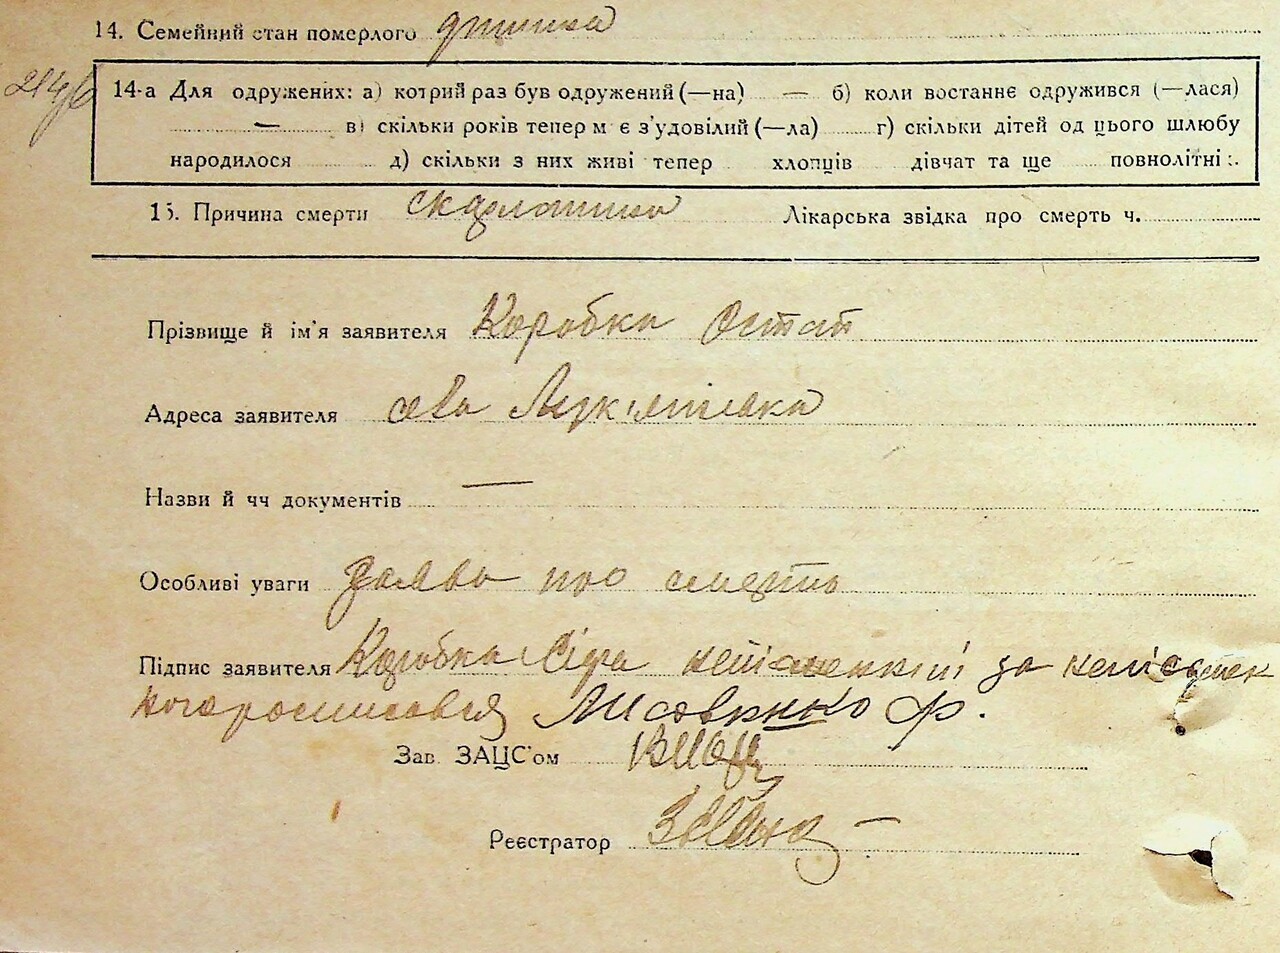 14. Семейний стан померлого дитина
14-а Для одружених: а) котрий раз був одружений (—на) — б) коли востаннє одружився (—лася)
— в) скільки років тепер м є з'удовілий (—ла) г) скільки дітей од цього шлюбу
народилося д) скільки з них живі тепер хлопців дівчат та ще повнолітні :.
15. Причина смерти скарлатина Лікарська звідка про смерть ч.
Прізвище й ім'я заявителя Коробка Остап
Адреса заявителя Лук'янівка
Назви й чч документів —
Особливі уваги заява про смерть
Підпис заявителя Коробка за
Лисовенко Ф.
Зав. ЗАЦС'ом
Реєстратор